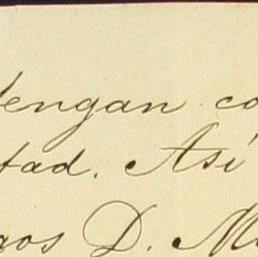 tengan co
tad. Así
gos D. M